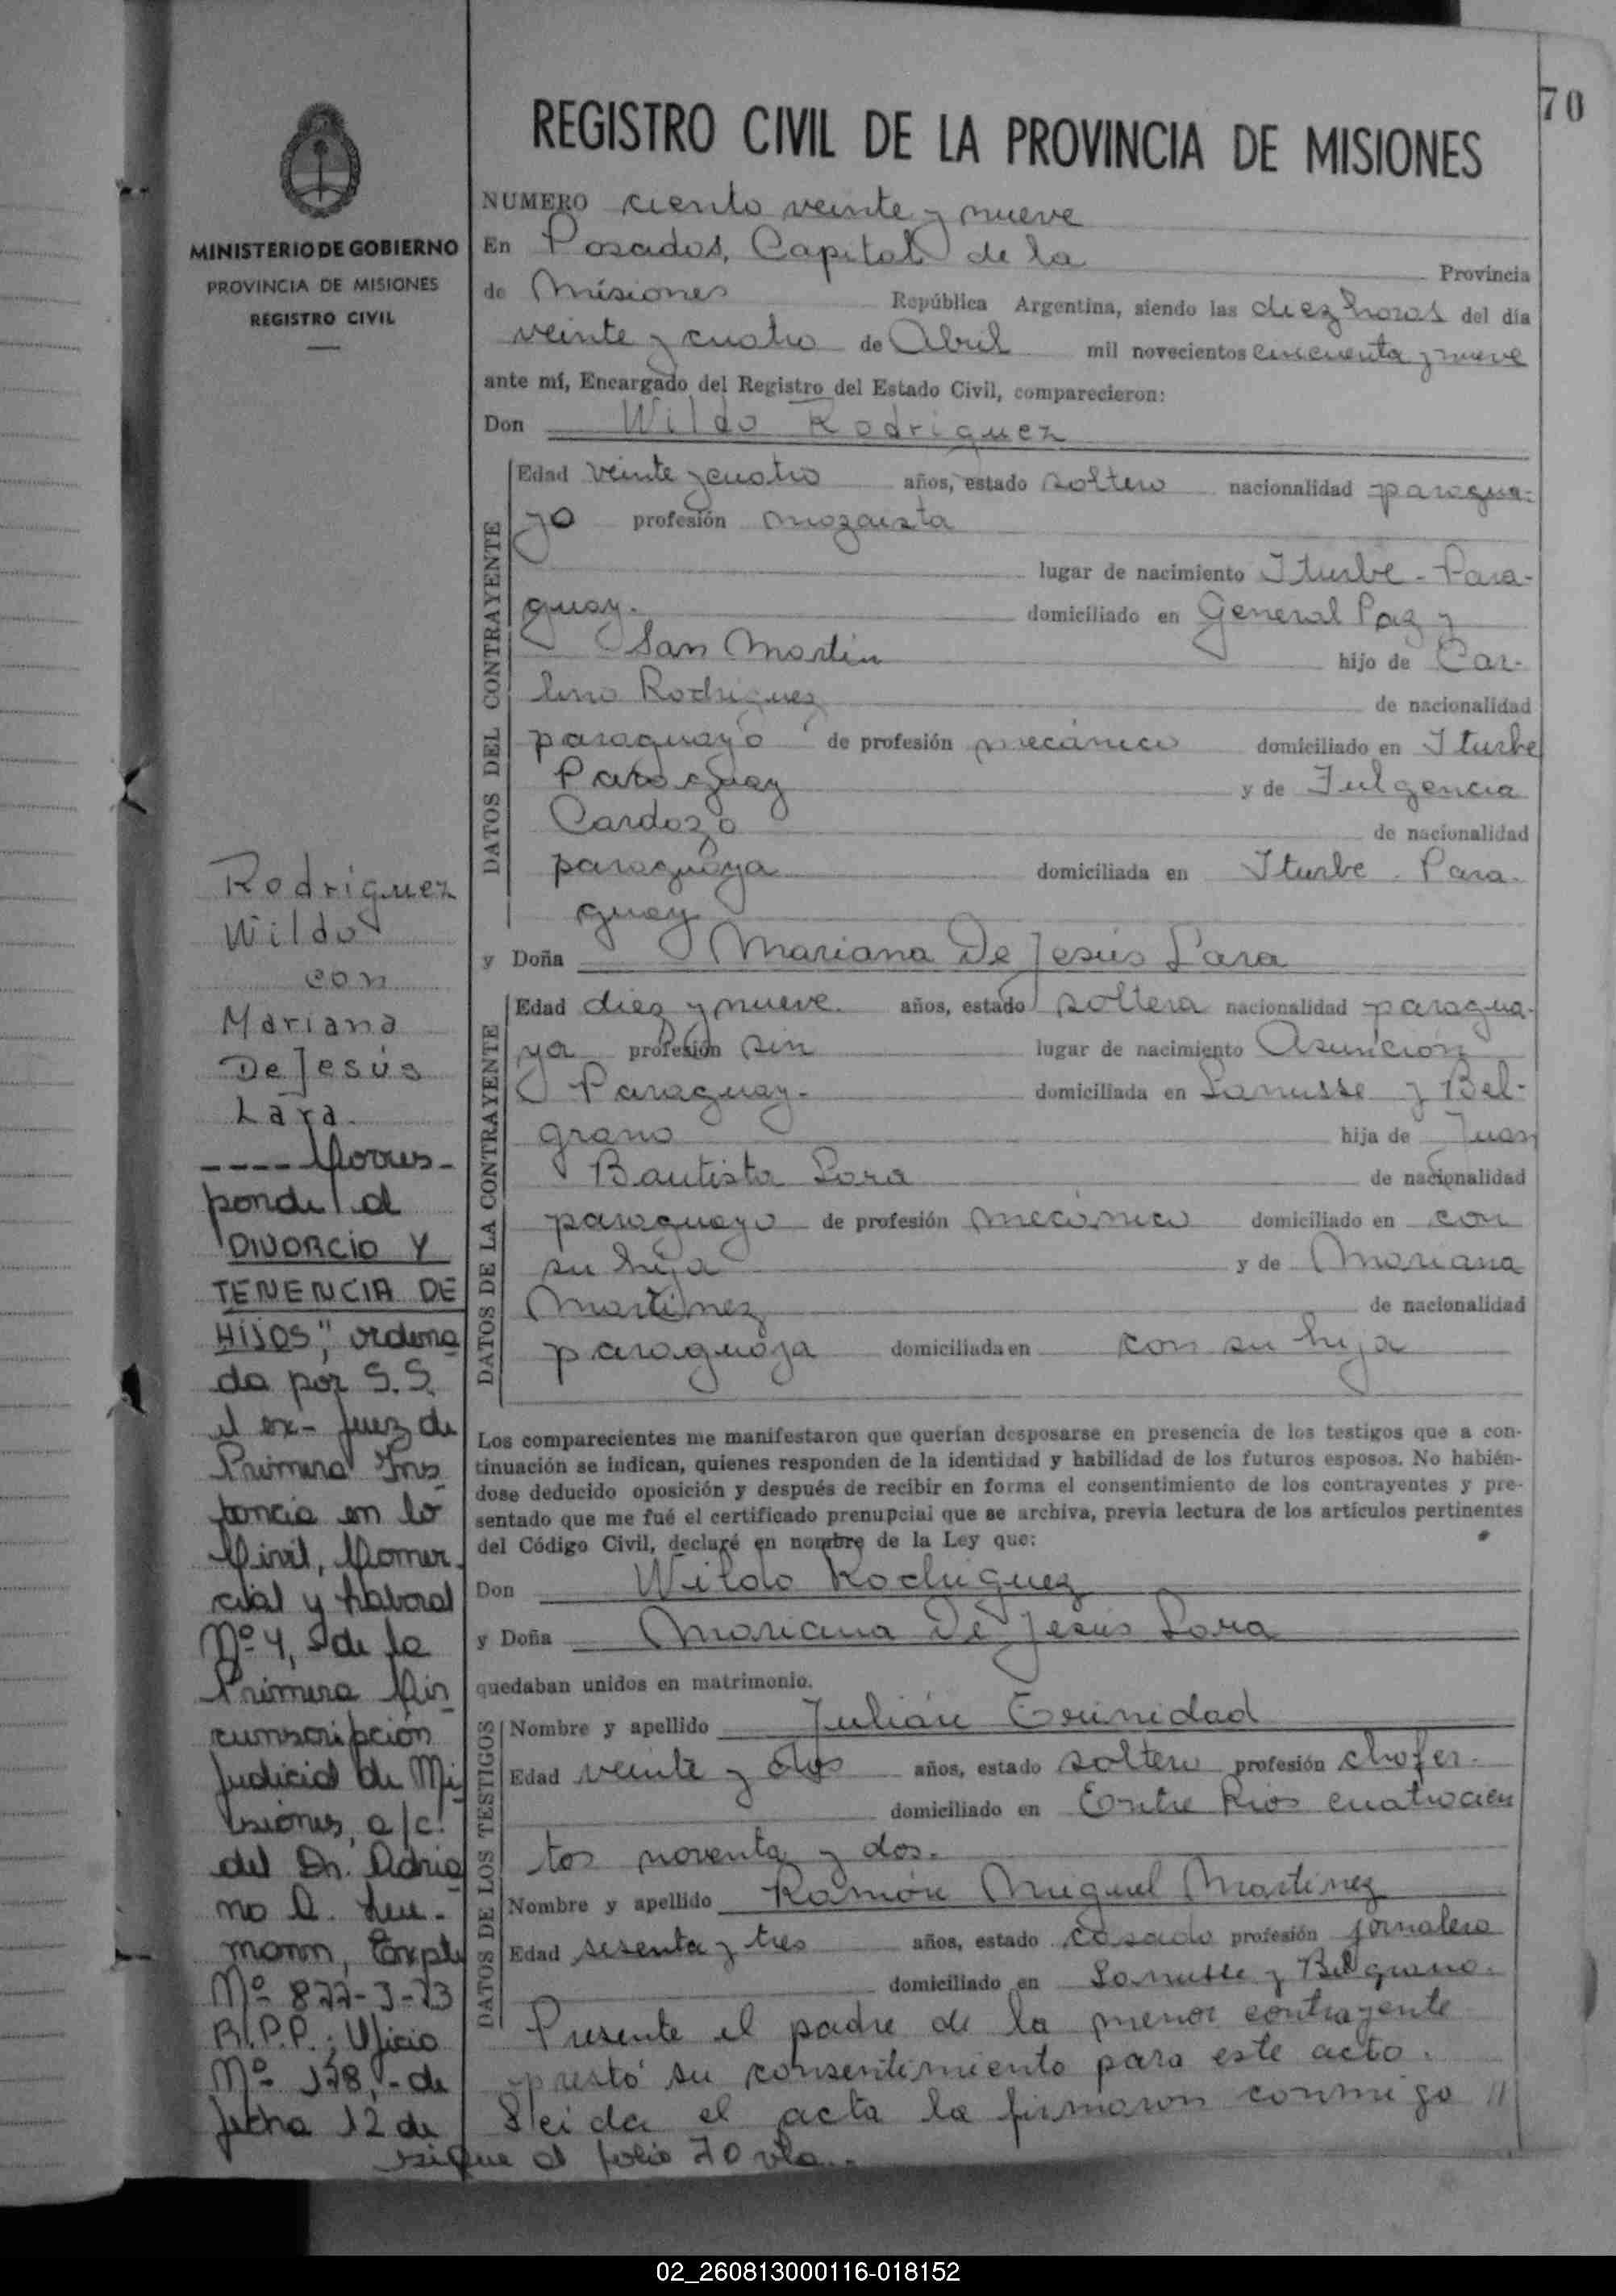 70
REGISTRO CIVIL DE LA PROVINCIA DE MISIONES
MINISTERIO DE GOBIERNO
PROVINCIA DE MISIONES
REGISTRO CIVIL
NUMERO ciento veinte y nueve
En Posadas, Capital de la Provincia
de Misiones República Argentina, siendo las diez horas del día
veinte y cuatro de Abril mil novecientos cincuenta y nueve
ante mí, Encargado del Registro del Estado Civil, comparecieron:
Don Wildo Rodriguez
DATOS DEL CONTRAYENTE
Edad veinte y cuatro años, estado soltero nacionalidad paragua-
yo profesión mozaista
lugar de nacimiento Iturbe - Para-
guay.- domiciliado en General Paz y
San Martin hijo de Car-
lino Rodriguez de nacionalidad
paraguayo de profesión mecánico domiciliado en Iturbe
Paraguay y de Fulgencia
Cardozo de nacionalidad
paraguaya domiciliada en Iturbe - Para-
guay
y Doña Mariana De Jesús Lara
DATOS DE LA CONTRAYENTE
Edad diez y nueve. años, estado soltera nacionalidad paragua-
ya profesión sin lugar de nacimiento Asunción
Paraguay.- domiciliada en Lanusse y Bel-
grano hija de Juan
Bautista Lara de nacionalidad
paraguayo de profesión mecánico domiciliado en con
su hija y de Mariana
Martinez de nacionalidad
paraguaya domiciliada en con su hija
Los comparecientes me manifestaron que querían desposarse en presencia de los testigos que a con-
tinuación se indican, quienes responden de la identidad y habilidad de los futuros esposos. No habién-
dose deducido oposición y después de recibir en forma el consentimiento de los contrayentes y pre-
sentado que me fué el certificado prenupcial que se archiva, previa lectura de los artículos pertinentes
del Código Civil, declaré en nombre de la Ley que:
Don Wildo Rodriguez
y Doña Mariana De Jesús Lara
quedaban unidos en matrimonio.
DATOS DE LOS TESTIGOS
Nombre y apellido Julián Trinidad
Edad veinte y dos años, estado soltero profesión chofer.
domiciliado en Entre Rios cuatrocien
tos noventa y dos.
Nombre y apellido Ramón Miguel Martinez
Edad sesenta y tres años, estado casado profesión jornalero
domiciliado en Lanusse y Belgrano.
Presente el padre de la menor contrayente
prestó su consentimiento para este acto.
Leida el acta la firmaron conmigo //
Rodriguez
Wildo
con
Mariana
De Jesús
Lara.
---- Corres-
ponde al
DIVORCIO Y
TENENCIA DE
HIJOS", ordena
da por S.S.
el ex-Juez de
Primera Ins
tancia en lo
Civil, Comer-
cial y Laboral
Nº 4, de la
Primera Cir
cunscripción
Judicial de Mi
siones, a/c.
del Dr. Adria
no
mann, Expte
Nº 877-3-73
R.P.P.; Oficio
Nº 178,- de
fecha 12 de
sigue al folio 70 vta..
02_260813000116-018152